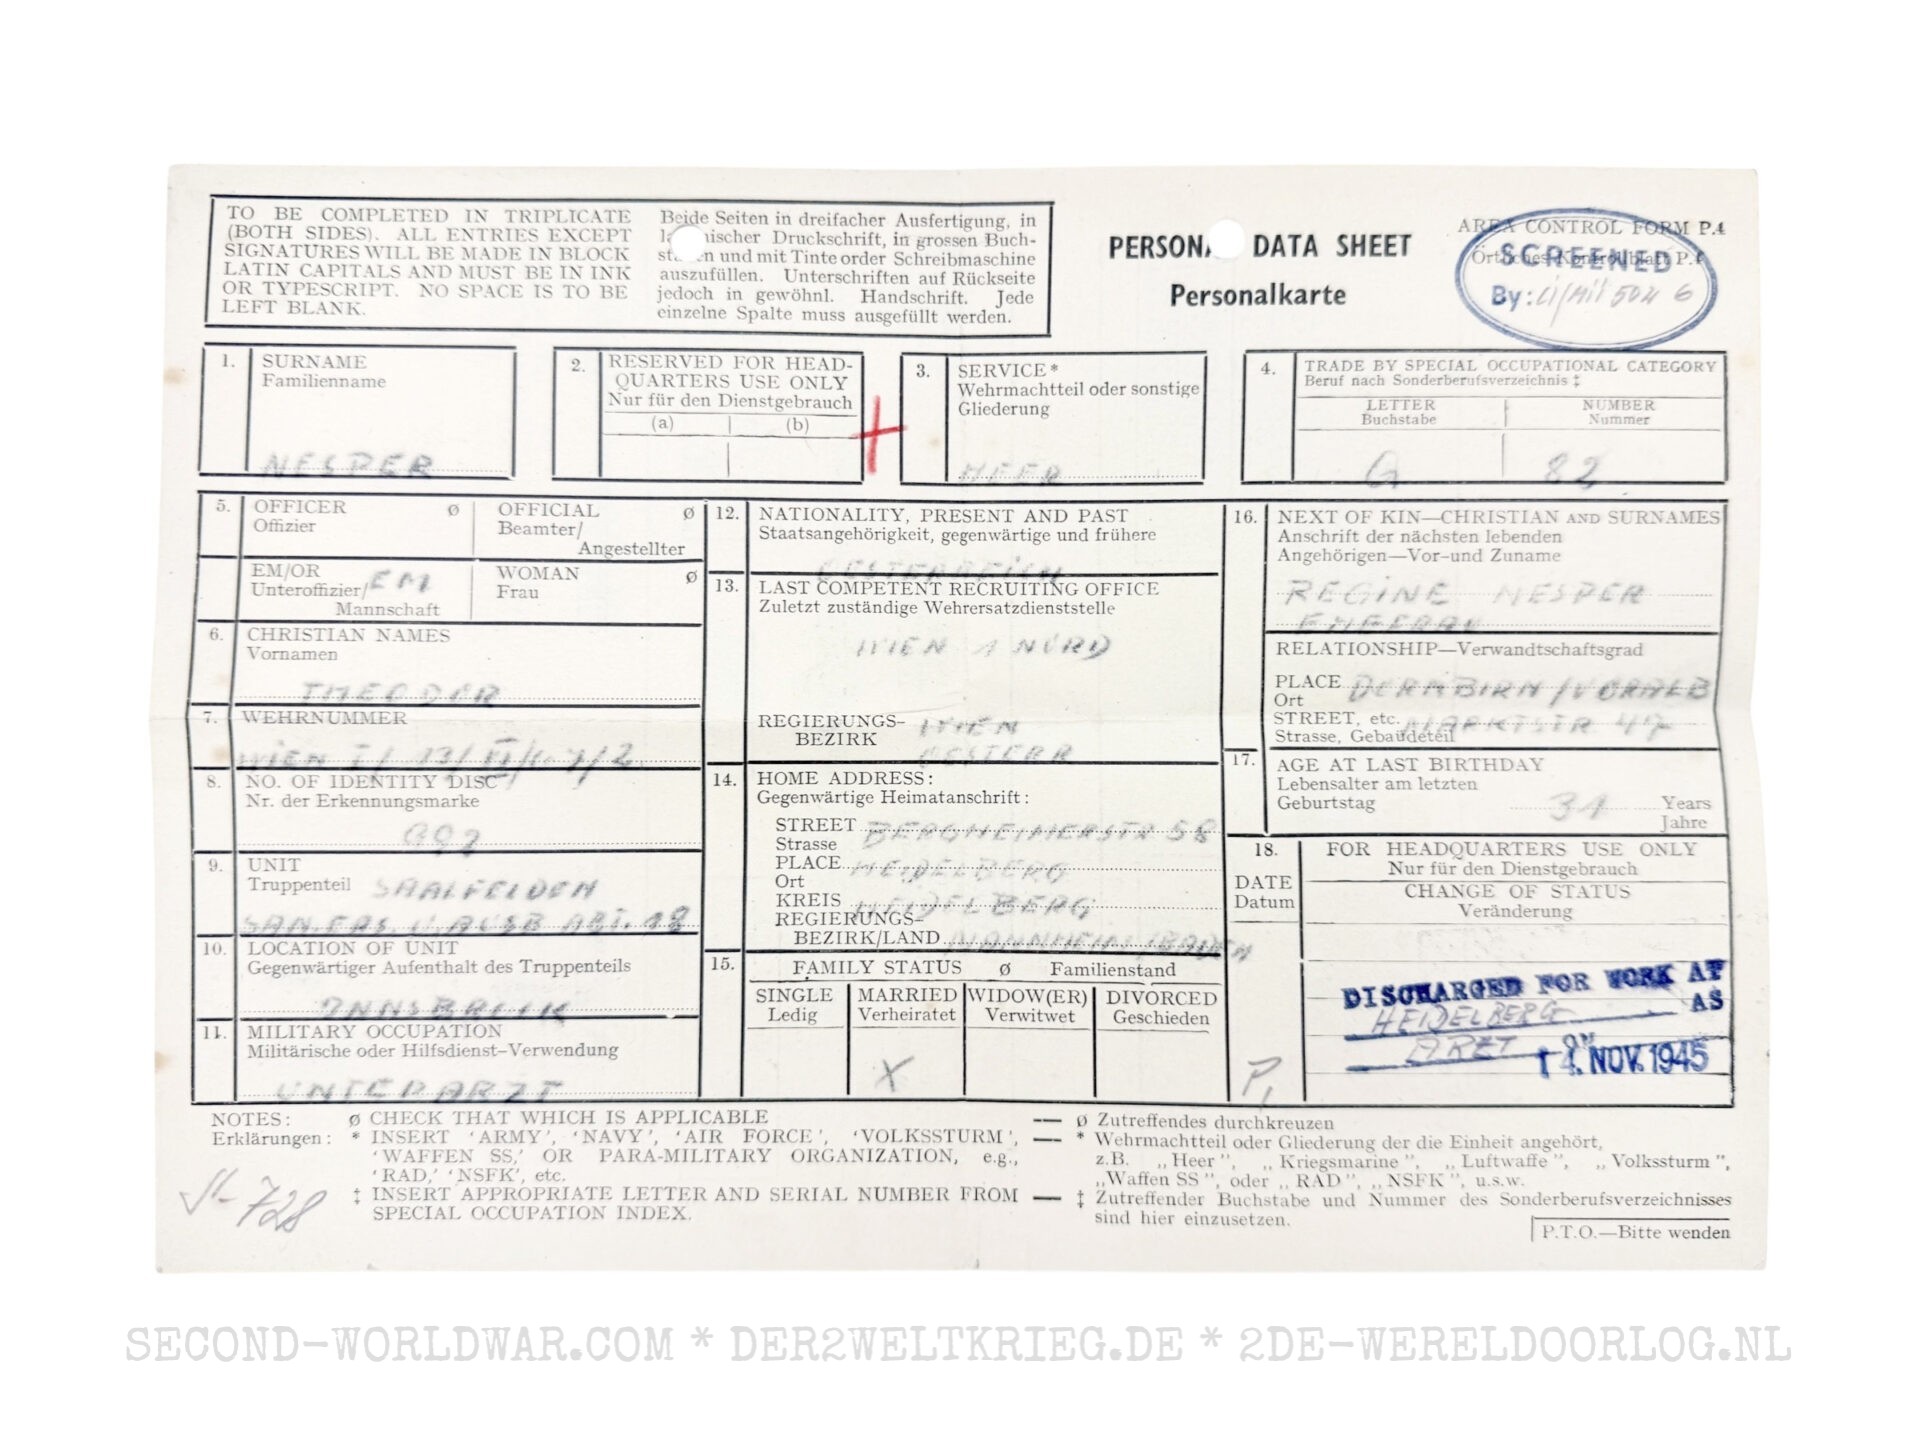 TO BE COMPLETED IN TRIPLICATE
(BOTH SIDES). ALL ENTRIES EXCEPT
SIGNATURES WILL BE MADE IN BLOCK
LATIN CAPITALS AND MUST BE IN INK
OR TYPESCRIPT. NO SPACE IS TO BE
LEFT BLANK.
Beide Seiten in dreifacher Ausfertigung, in
nischer Druckschrift, in grossen Buch-
en und mit Tinte order Schreibmaschine
auszufüllen. Unterschriften auf Rückseite
jedoch in gewöhnl. Handschrift. Jede
einzelne Spalte muss ausgefüllt werden.
PERSONA DATA SHEET
Personalkarte
AREA CONTROL FORM P.4
Örtliches Kontrollblatt P.4
SCREENED
By:
1. SURNAME
Familienname
NESPER
2. RESERVED FOR HEAD-
QUARTERS USE ONLY
Nur für den Dienstgebrauch
(a) (b)
3. SERVICE*
Wehrmachtteil oder sonstige
Gliederung
HEER
4. TRADE BY SPECIAL OCCUPATIONAL CATEGORY
Beruf nach Sonderberufsverzeichnis ‡
LETTER NUMBER
Buchstabe Nummer
G 82
5. OFFICER ø OFFICIAL ø
Offizier Beamter/
Angestellter
EM/OR WOMAN ø
Unteroffizier/ EM Frau
Mannschaft
6. CHRISTIAN NAMES
Vornamen
THEODOR
7. WEHRNUMMER
WIEN
8. NO. OF IDENTITY DISC
Nr. der Erkennungsmarke
9. UNIT
Truppenteil SAALFELDEN
SAN.ERS. U. AUSB ABT. 18
10. LOCATION OF UNIT
Gegenwärtiger Aufenthalt des Truppenteils
INNSBRUCK
11. MILITARY OCCUPATION
Militärische oder Hilfsdienst-Verwendung
UNTERARZT
12. NATIONALITY, PRESENT AND PAST
Staatsangehörigkeit, gegenwärtige und frühere
OESTERREICH
13. LAST COMPETENT RECRUITING OFFICE
Zuletzt zuständige Wehrersatzdienststelle
WIEN 1 NORD
REGIERUNGS- WIEN
BEZIRK OESTERR
14. HOME ADDRESS:
Gegenwärtige Heimatanschrift:
STREET BERGHEIMERSTR 58
Strasse
PLACE HEIDELBERG
Ort
KREIS HEIDELBERG
REGIERUNGS-
BEZIRK/LAND MANNHEIM/BADEN
15. FAMILY STATUS ø Familienstand
SINGLE MARRIED WIDOW(ER) DIVORCED
Ledig Verheiratet Verwitwet Geschieden
X
16. NEXT OF KIN—CHRISTIAN AND SURNAMES
Anschrift der nächsten lebenden
Angehörigen—Vor-und Zuname
REGINE NESPER
EHEFRAU
RELATIONSHIP—Verwandtschaftsgrad
PLACE DORNBIRN/VORARLB
Ort
STREET, etc. MARKTSTR 47
Strasse, Gebaüdeteil
17. AGE AT LAST BIRTHDAY
Lebensalter am letzten
Geburtstag 31 Years
Jahre
18. FOR HEADQUARTERS USE ONLY
Nur für den Dienstgebrauch
DATE CHANGE OF STATUS
Datum Veränderung
DISCHARGED FOR WORK AT
HEIDELBERG AS
ARZT ON
14. NOV. 1945
NOTES: ø CHECK THAT WHICH IS APPLICABLE — ø Zutreffendes durchkreuzen
Erklärungen: * INSERT 'ARMY', 'NAVY', 'AIR FORCE', 'VOLKSSTURM', — * Wehrmachtteil oder Gliederung der die Einheit angehört,
'WAFFEN SS,' OR PARA-MILITARY ORGANIZATION, e.g., z.B. „Heer", „Kriegsmarine", „Luftwaffe", „Volkssturm",
'RAD,' 'NSFK', etc. „Waffen SS", oder „RAD", „NSFK", u.s.w.
‡ INSERT APPROPRIATE LETTER AND SERIAL NUMBER FROM — ‡ Zutreffender Buchstabe und Nummer des Sonderberufsverzeichnisses
SPECIAL OCCUPATION INDEX. sind hier einzusetzen.
728
P.T.O.—Bitte wenden
SECOND-WORLDWAR.COM * DER2WELTKRIEG.DE * 2DE-WERELDOORLOG.NL